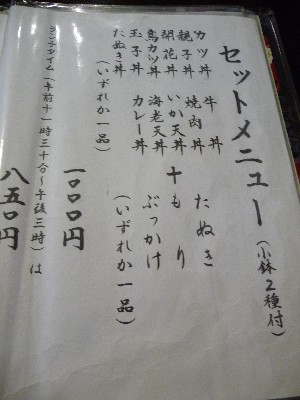 セットメニュー(小鉢2種付)
カツ丼 牛丼
親子丼 焼肉丼
胡花丼 いか天丼
鳥カツ丼 海老天丼
玉子丼 カレー丼
たぬき丼
(いずれか一品)
十
たぬき
もり
ぶっかけ
(いずれか一品)
一〇〇〇円
ランチタイム(午前十一時三十分〜午後三時)は
八五〇円